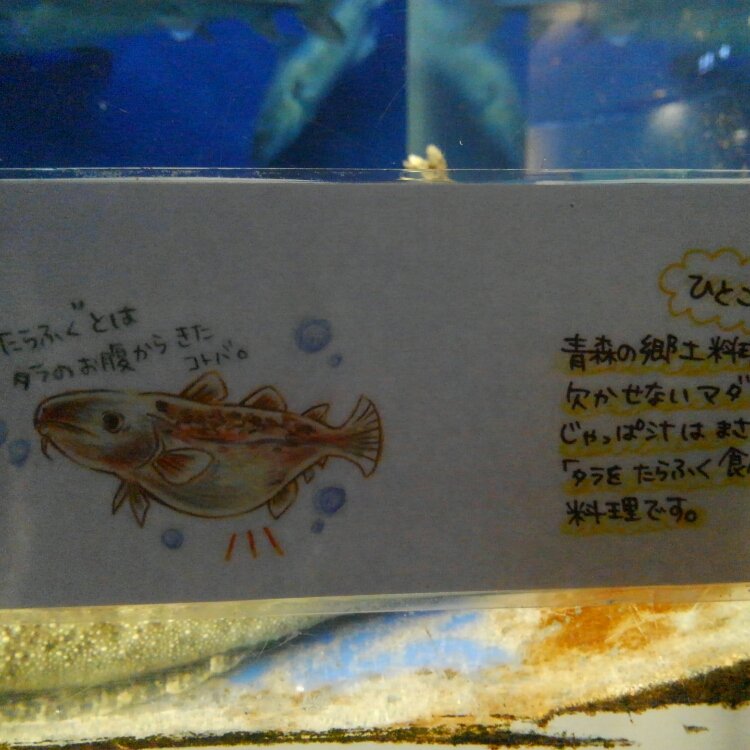 たらふぐとは
タラのお腹からきた
コトバ。
ひとこ
青森の郷土料理
欠かせないマダ
じゃっぱ汁はまさ
「タラをたらふく食
料理です。